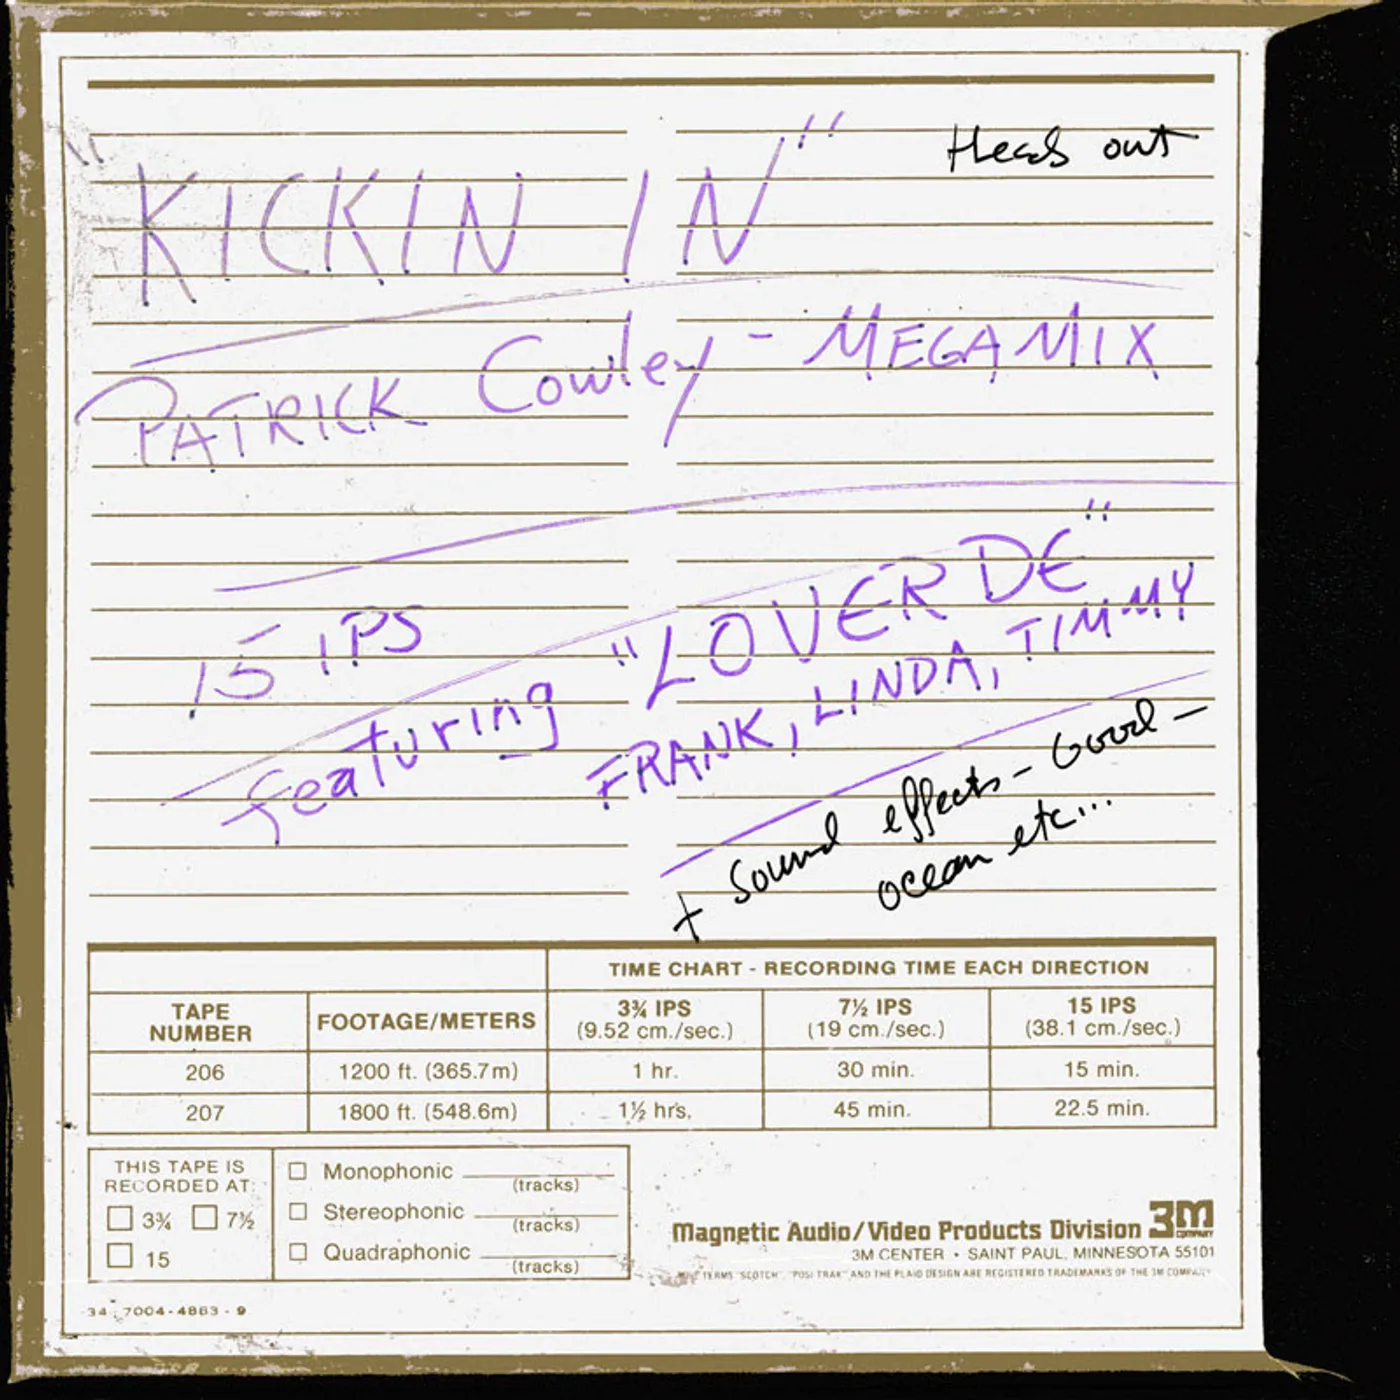 "KICKIN IN"
Heads out
PATRICK Cowley - MEGAMIX
15 IPS
featuring "LOVERDE"
FRANK, LINDA, TIMMY
+ Sound effects - Good -
ocean etc...
TIME CHART - RECORDING TIME EACH DIRECTION
TAPE NUMBER FOOTAGE/METERS 3¾ IPS (9.52 cm./sec.) 7½ IPS (19 cm./sec.) 15 IPS (38.1 cm./sec.)
206 1200 ft. (365.7m) 1 hr. 30 min. 15 min.
207 1800 ft. (548.6m) 1½ hrs. 45 min. 22.5 min.
THIS TAPE IS
RECORDED AT:
3¾ 7½
15
Monophonic
(tracks)
Stereophonic
(tracks)
Quadraphonic
(tracks)
Magnetic Audio/Video Products Division 3M
COMPANY
3M CENTER • SAINT PAUL, MINNESOTA 55101
TERMS "SCOTCH", "POSI-TRAK" AND THE PLAID DESIGN ARE REGISTERED TRADEMARKS OF THE 3M COMPANY
34-7004-4863-9